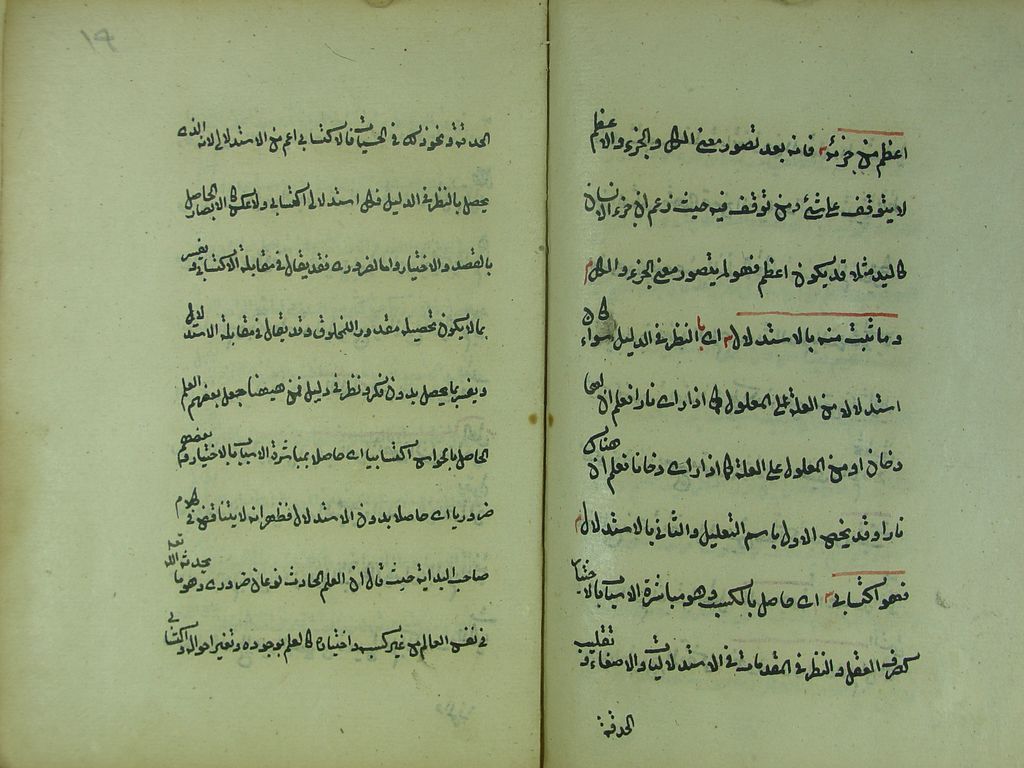 اعظم من جزئه فانه بعد تصور معنى الكل والجزء والاعظم
لا يتوقف على شئ ومن توقف فيه حيث زعم ان جزء الانسان
كاليد مثلا قد يكون اعظم فهو لم يتصور معنى الجزء والكل
وما ثبت منه بالاستدلال اى بالنظر فى الدليل سواء كان
استدلالا من العلة على المعلول كما اذا راى نارا فعلم ان لها
دخان او من المعلول على العلة كما اذا راى دخانا فعلم ان هناك
نارا وقد يخص الاول باسم التعليل والثانى بالاستدلال
فهو اكتسابى اى حاصل بالكسب وهو مباشرة الاسباب بالاختيار
كصرف العقل والنظر فى المقدمات فى الاستدلاليات والاصغاء وتقليب
الحدقة
١٩
الحدقة ونحو ذلك فى الحسيات فالاكتسابى اعم من الاستدلالى لانه الذى
يحصل بالنظر فى الدليل فكل استدلالى اكتسابى ولا عكس كالابصار الحاصل
بالقصد والاختيار واما الضرورى فقد يقال فى مقابلة الاكتسابى ويفسر
بما لا يكون تحصيله مقدورا للمخلوق وقد يقال فى مقابلة الاستدلالى
ويفسر بما يحصل بدون فكر ونظر فى دليل فمن هيهنا جعل بعضهم العلم
الحاصل بالحواس اكتسابيا اى حاصلا بمباشرة الاسباب بالاختيار وبعضهم
ضروريا اى حاصلا بدون الاستدلال فظهر انه لا يتناقض فى كلام
صاحب البداية حيث قال ان العلم الحادث نوعان ضرورى وهو ما يحدثه الله تعالى
فى نفس العالم من غير كسب واختياره كالعلم بوجوده وتغير احواله واكتسابى